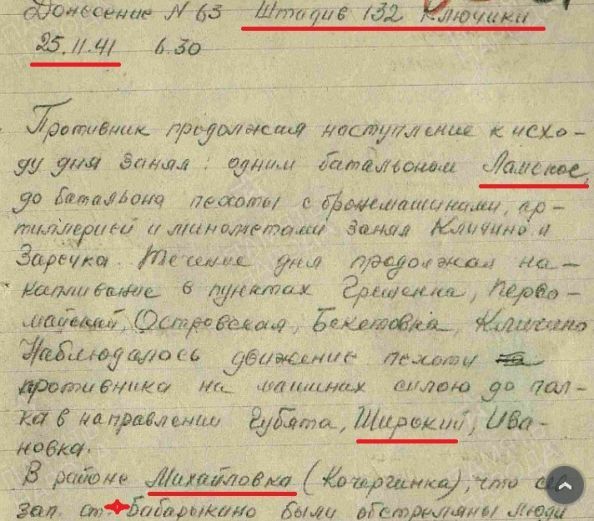 Донесение N 63 Штадив 132 Ключики
25.11.41 6.30
Противник продолжая наступление к исхо-
ду дня занял: одним батальоном Ламское,
до батальона пехоты с бронемашинами, ар-
тиллерией и минометами занял Кличино и
Заречка. Течение дня продолжал на-
капливание в пунктах Грешенка, Перво-
майский, Островская, Бекетовка, Кличино
Наблюдалось движение пехоты
противника на машинах силою до пол-
ка в направлении Губята, Широкий, Ива-
новка.
В районе Михайловка (Кочергинка), что
зап. ст. Бабарыкино были обстреляны люди